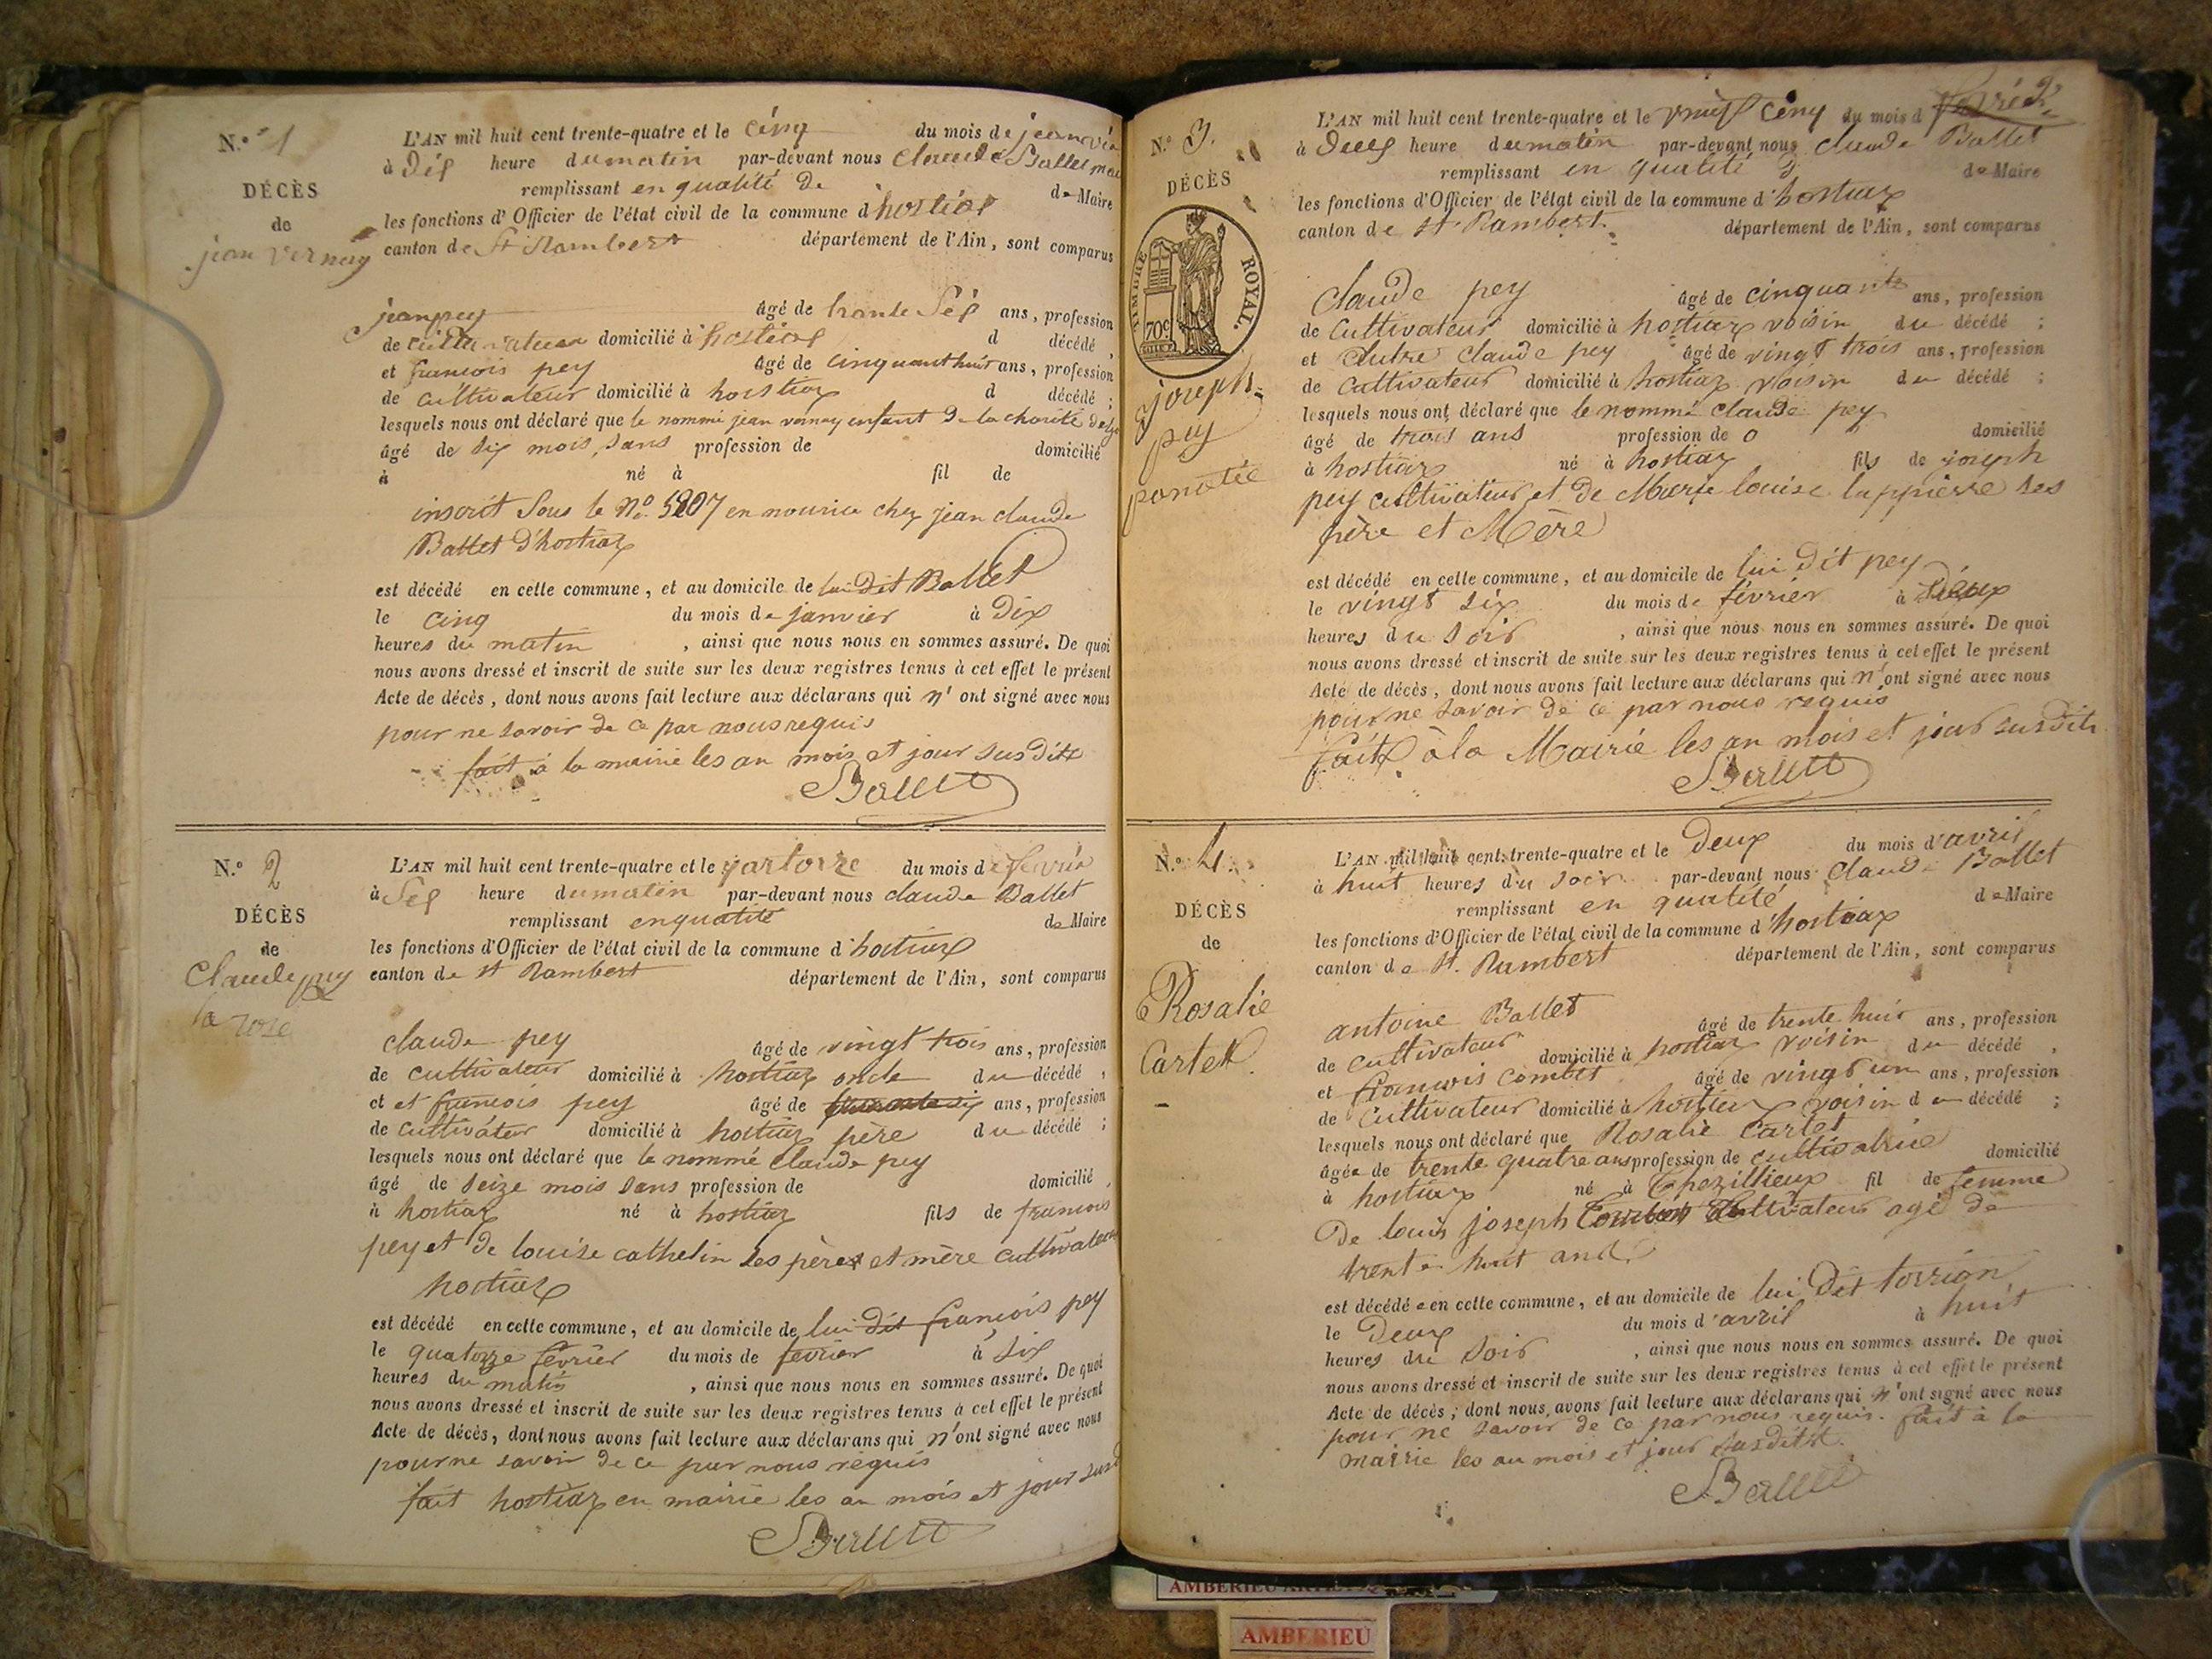 N.º 1
DÉCÈS
de
jean vernay
L'AN mil huit cent trente-quatre et le cinq du mois de janvié
à dis heure du matin par-devant nous claude Ballet
remplissant en qualité de de Maire
les fonctions d'Officier de l'état civil de la commune d'hostias
canton de St Rambert département de l'Ain, sont comparus
jean pey âgé de trante ans, profession
de domicilié à hostias d décédé,
et francois pey âgé de cinquant huit ans, profession
de cultivateur domicilié à hostiaz d décédé ;
lesquels nous ont déclaré que le nommé jean vernay enfant de la charité de
âgé de six mois, sans profession de domicilié
à né à fil de
inscrit sous le nº 5207 en nourice chez jean claude
Ballet d'hostiaz
est décédé en cette commune, et au domicile de lui dit Ballet
le cinq du mois de janvier à dix
heures du matin, ainsi que nous nous en sommes assuré. De quoi
nous avons dressé et inscrit de suite sur les deux registres tenus à cet effet le présent
Acte de décès, dont nous avons fait lecture aux déclarans qui n'ont signé avec nous
pour ne savoir de ce par nous requis
fait à la mairie les an mois et jour susdits
Ballet
N.º 2
DÉCÈS
de
Claude pey
la rose
L'AN mil huit cent trente-quatre et le du mois de
à heure du matin par-devant nous claude Ballet
remplissant en qualité de Maire
les fonctions d'Officier de l'état civil de la commune d'hostiaz
canton de st Rambert département de l'Ain, sont comparus
claude pey âgé de vingt trois ans, profession
de cultivateur domicilié à hostiaz oncle du décédé,
et et francois pey âgé de ans, profession
de cultivateur domicilié à hostiaz père du décédé ;
lesquels nous ont déclaré que le nommé claude pey
âgé de seize mois sans profession de domicilié
à hostiaz né à hostiaz fils de francois
pey et de louise cathelin ses pères et mère cultivateur
hostiaz
est décédé en cette commune, et au domicile de lui dit francois pey
le quatorze février du mois de fevrier à six
heures du matin, ainsi que nous nous en sommes assuré. De quoi
nous avons dressé et inscrit de suite sur les deux registres tenus à cet effet le présent
Acte de décès, dont nous avons fait lecture aux déclarans qui n'ont signé avec nous
pour ne savoir de ce par nous requis
fait hostiaz en mairie les an mois et jour
Ballet
N.º 3.
DÉCÈS
TIMBRE ROYAL.
70c
joseph
pey
L'AN mil huit cent trente-quatre et le cinq du mois d
à heure du matin par-devant nous claude Ballet
remplissant en qualité de Maire
les fonctions d'Officier de l'état civil de la commune d'hostiaz
canton de st Rambert. département de l'Ain, sont comparus
claude pey âgé de cinquante ans, profession
de cultivateur domicilié à hostiaz voisin du décédé ;
et autre claude pey âgé de vingt trois ans, profession
de cultivateur domicilié à hostiaz voisin du décédé ;
lesquels nous ont déclaré que le nommé claude pey
âgé de trois ans profession de 0 domicilié
à hostiaz né à hostiaz fils de joseph
pey cultivateur et de Marie louise lappierre ses
père et Mère
est décédé en cette commune, et au domicile de lui dit pey
le vingt six du mois de février à
heures du soir, ainsi que nous nous en sommes assuré. De quoi
nous avons dressé et inscrit de suite sur les deux registres tenus à cet effet le présent
Acte de décès, dont nous avons fait lecture aux déclarans qui n'ont signé avec nous
pour ne savoir de ce par nous requis
fait à la Mairie les an mois et jour susdits
Ballet
N.º 4.
DÉCÈS
de
Rosalie
Cartet.
L'AN mil huit cent trente-quatre et le Deux du mois d'avril
à huit heures du soir par-devant nous Claude Ballet
remplissant en qualité de Maire
les fonctions d'Officier de l'état civil de la commune d'hostiaz
canton de st. Rambert département de l'Ain, sont comparus
antoine Ballet âgé de trente huit ans, profession
de cultivateur domicilié à hostiaz voisin du décédé,
et francois combet âgé de vingt un ans, profession
de cultivateur domicilié à hostiaz voisin du décédé ;
lesquels nous ont déclaré que Rosalie Cartet
âgée de trente quatre ans profession de cultivatrice domicilié
à hostiaz né à thezillieux fil de femme
De louis joseph cultivateur agé de
trente huit ans
est décédée en cette commune, et au domicile de lui Dit
le Deux du mois d'avril à huit
heures du soir, ainsi que nous nous en sommes assuré. De quoi
nous avons dressé et inscrit de suite sur les deux registres tenus à cet effet le présent
Acte de décès, dont nous avons fait lecture aux déclarans qui n'ont signé avec nous
pour ne savoir de ce par nous requis. fait à la
mairie les an mois et jour susdits.
Ballet
AMBERIEU
AMBERIEU